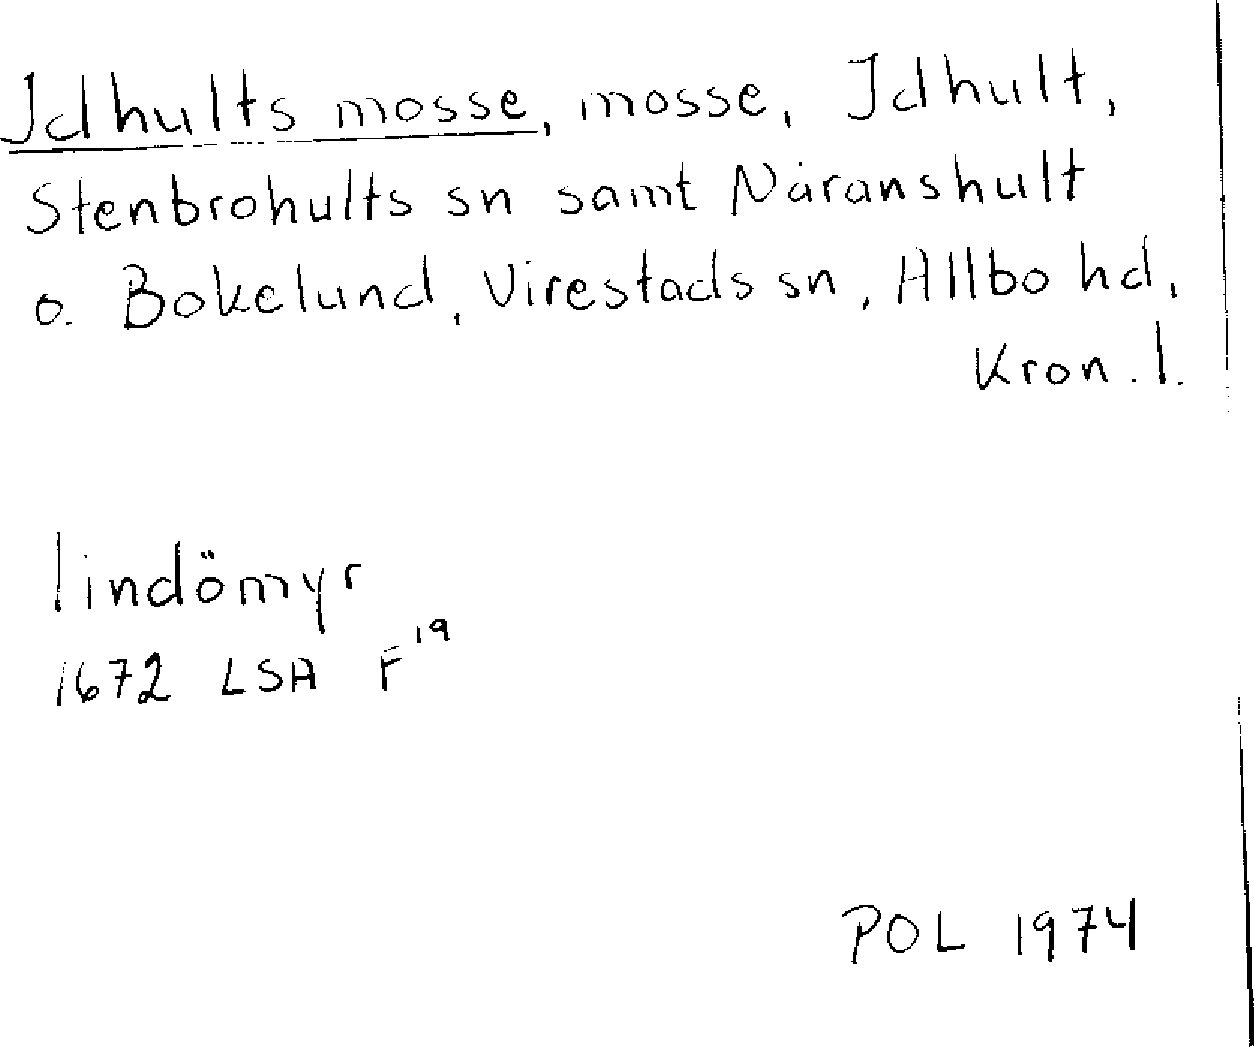 Idhults mosse, mosse, Idhult,
Stenbrohults sn samt Näranshult
o. Bokelund, Virestads sn, Allbo hd,
Kron. l.
lindömyr
1672 LSA F¹⁹
POL 1974